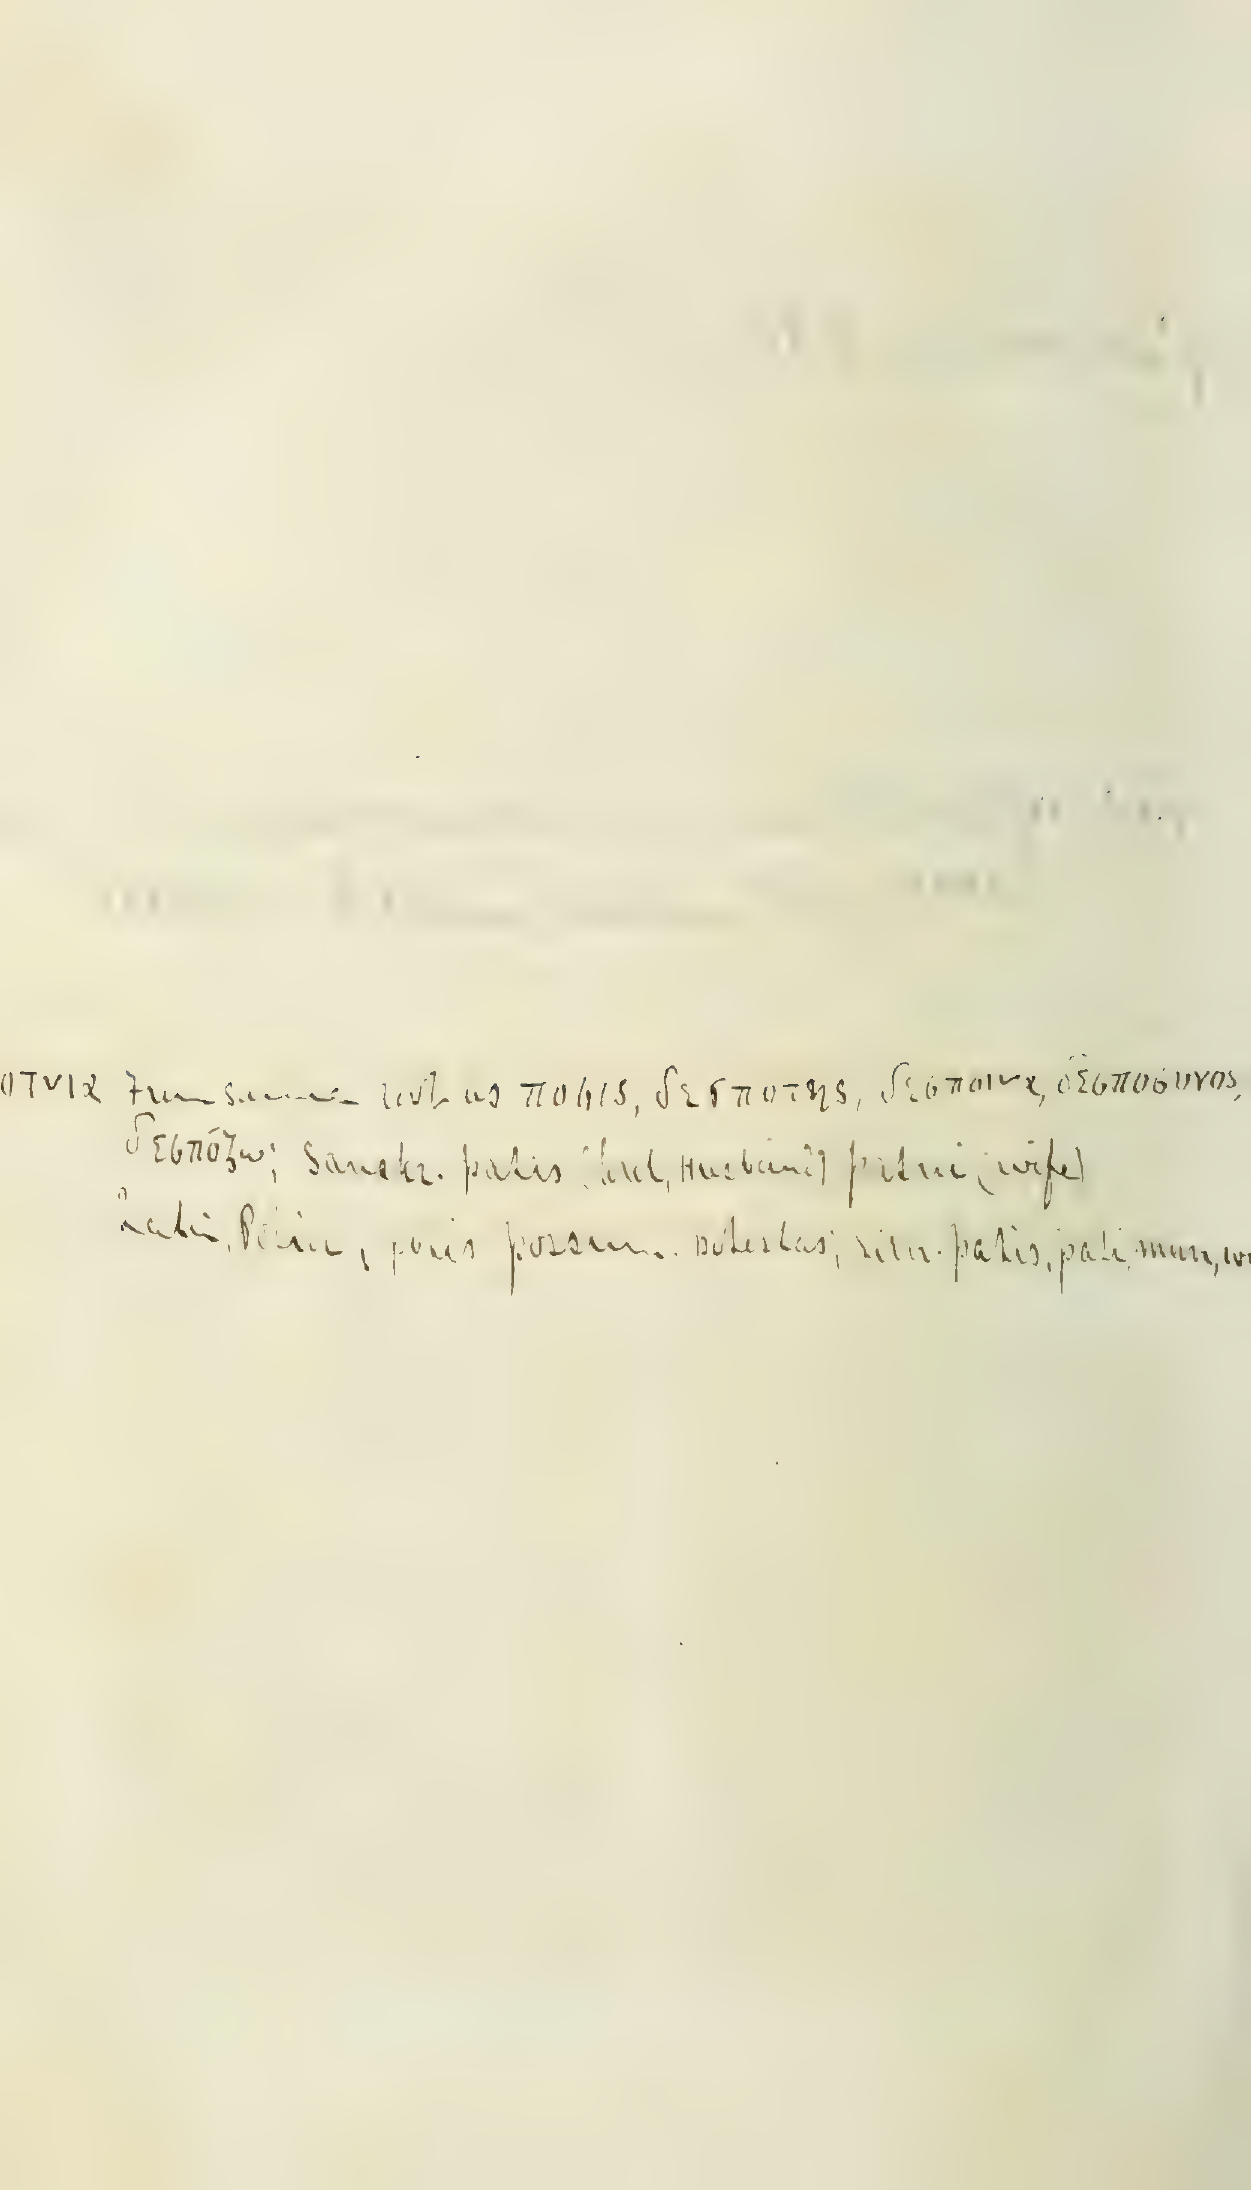 οτνια from same root as ποσις, δεσποτης, δεσποινα, δεσποσυνος,
δεσπόζω; Sanskr. patis (lord, Husband) patni (wife)
Latin, Potior, potis possum. potestas; Lith. patis, pati, man,